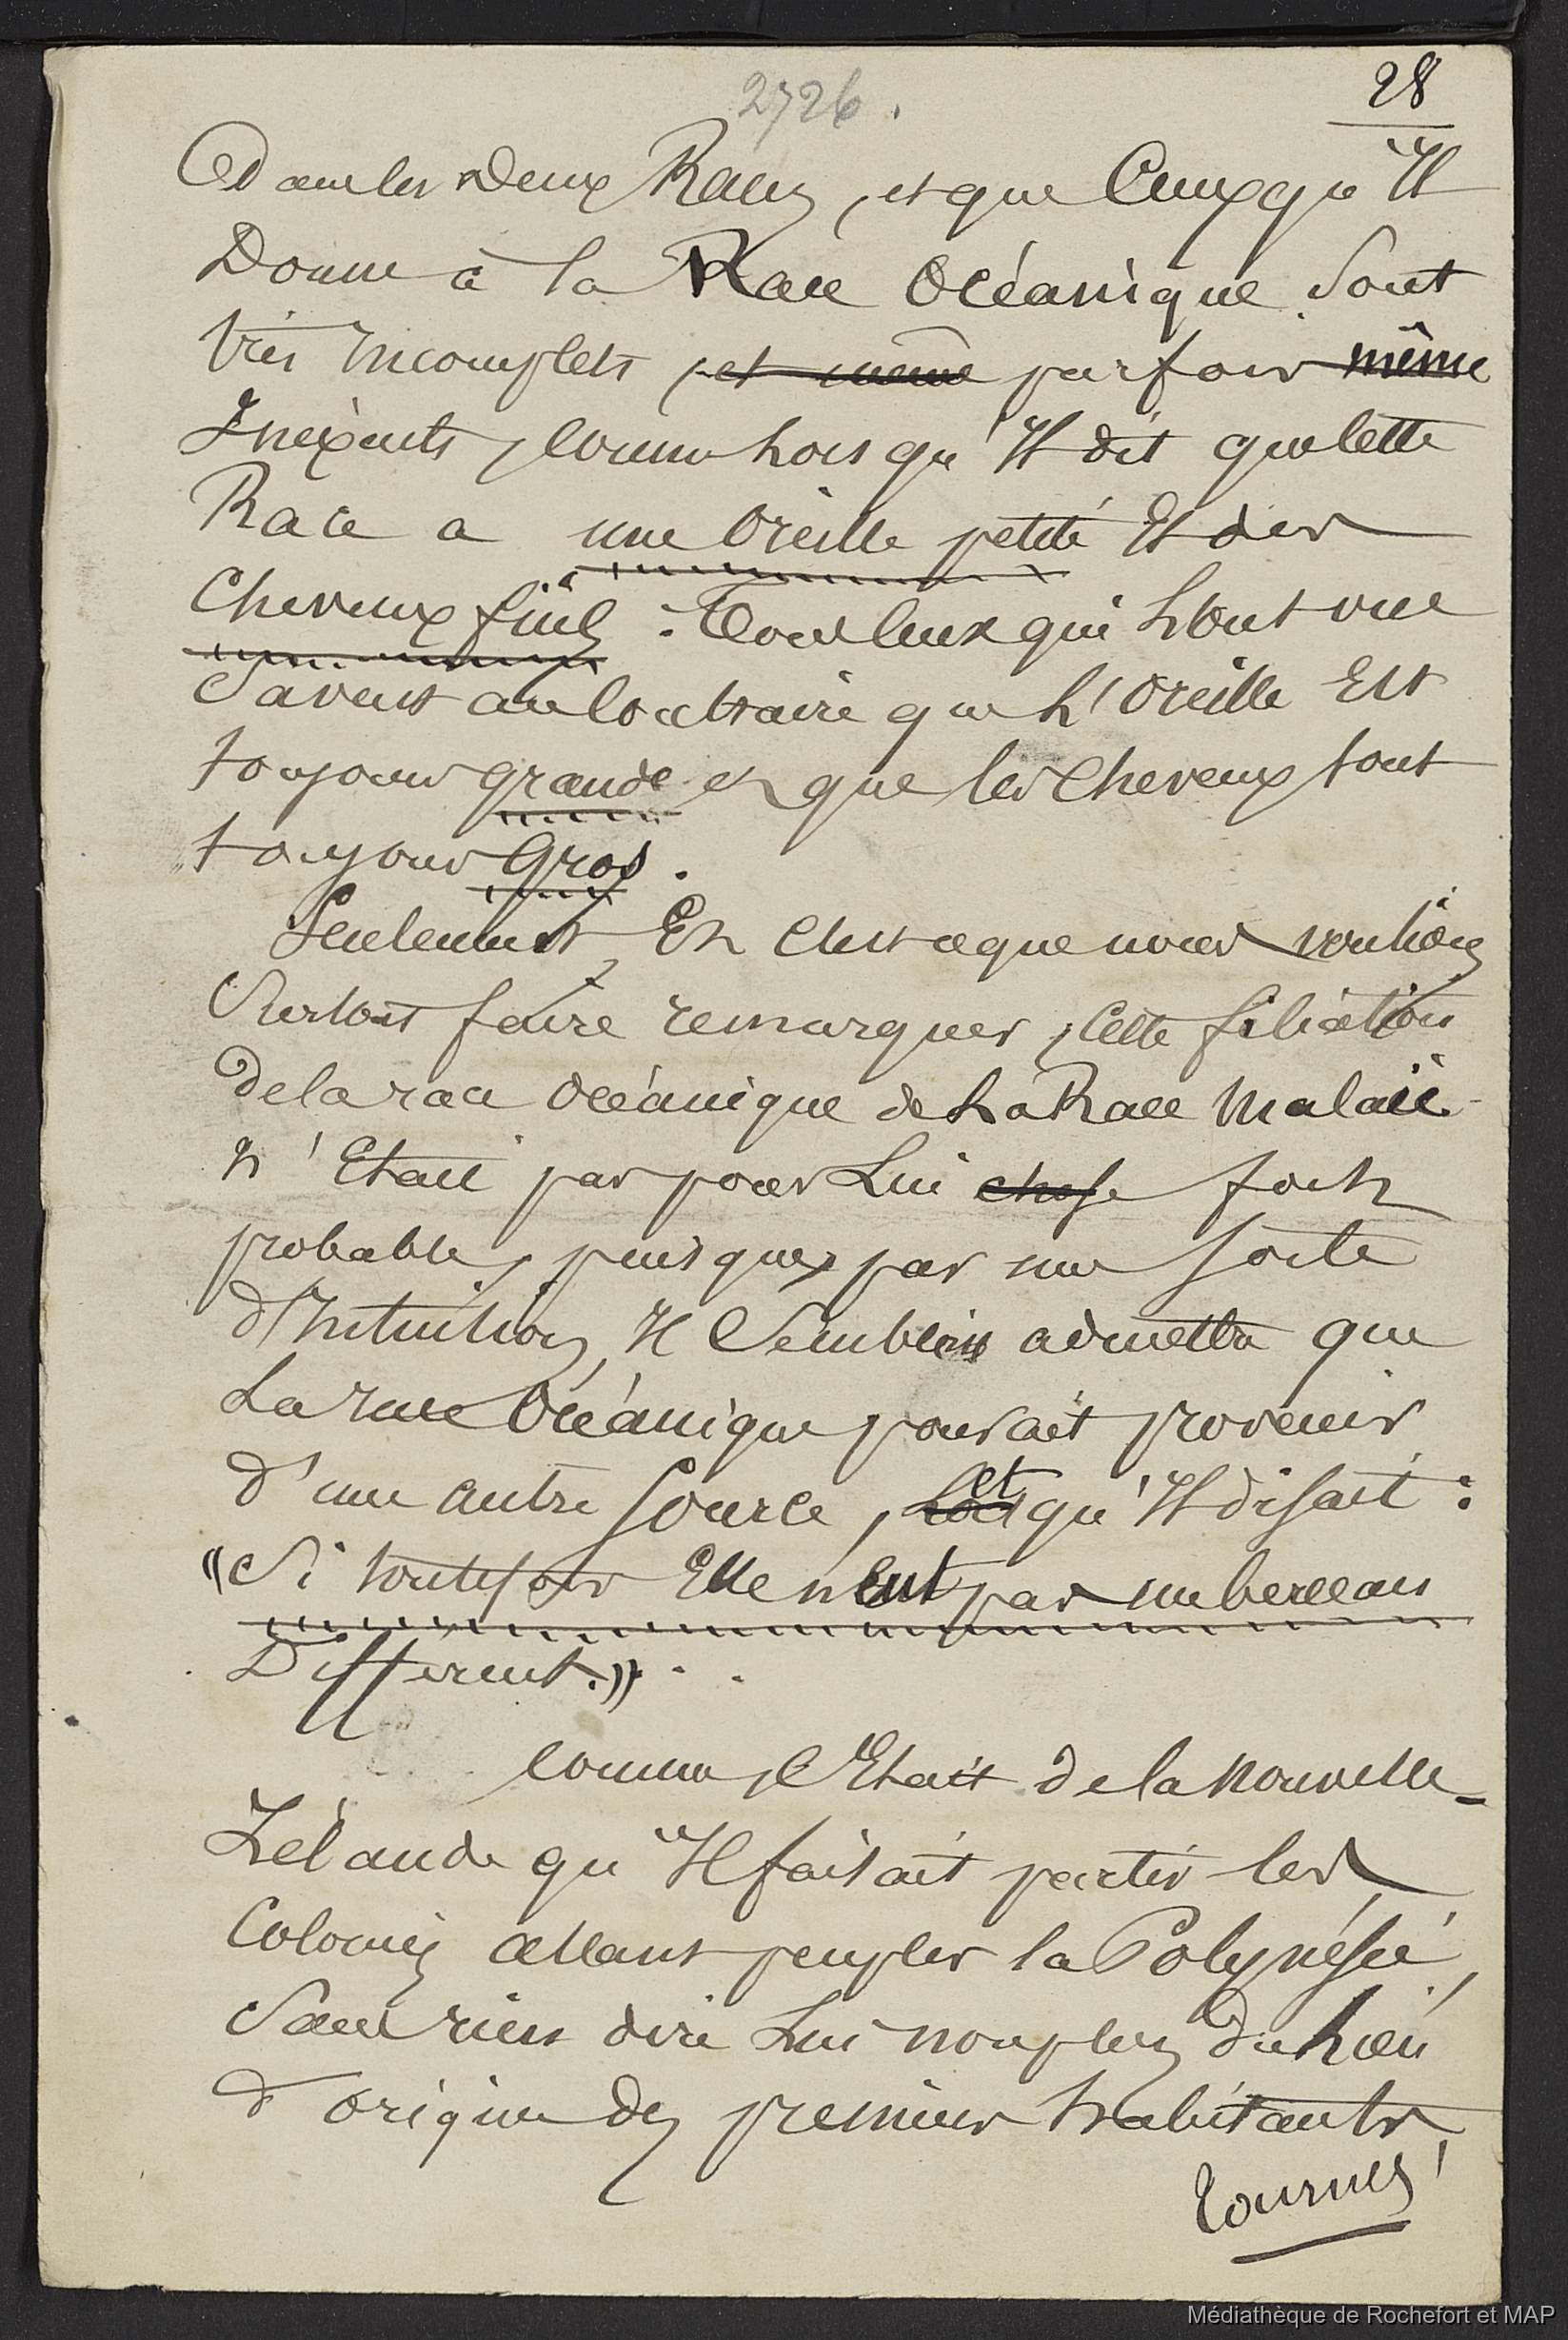 2726.
28
dans les deux Races, et que Ceux qu'Il
Donne à la Race Océanique sont
très incomplets, et même parfois même
Inexacts, comme lorsqu'Il dit que cette
Race a une Oreille petite Et des
Cheveux fins : Tous ceux qui l'ont vue
Savent au Contraire que l'Oreille Est
toujours grande et que les Cheveux sont
toujours Gros.
Seulement, Et C'est ce que nous voulions
Surtout faire remarquer, Cette filiation
de la race Océanique de la Race Malaie
n'Etait pas pour Lui chose fort
probable, puisque, par une sorte
d'Intuition, Il Semblait admettre que
La race Océanique pouvait provenir
d'une autre Source, et qu'Il disait :
«Si toutefois Elle n'Eut pas un berceau
Différent.» . .
Comme, C'Etait de la Nouvelle-
Zélande qu'Il faisait partir les
Colonies allant peupler la Polynésie,
Sans rien dire Lui non plus du Lieu
d'origine des premiers habitants,
tournez
Médiathèque de Rochefort et MAP